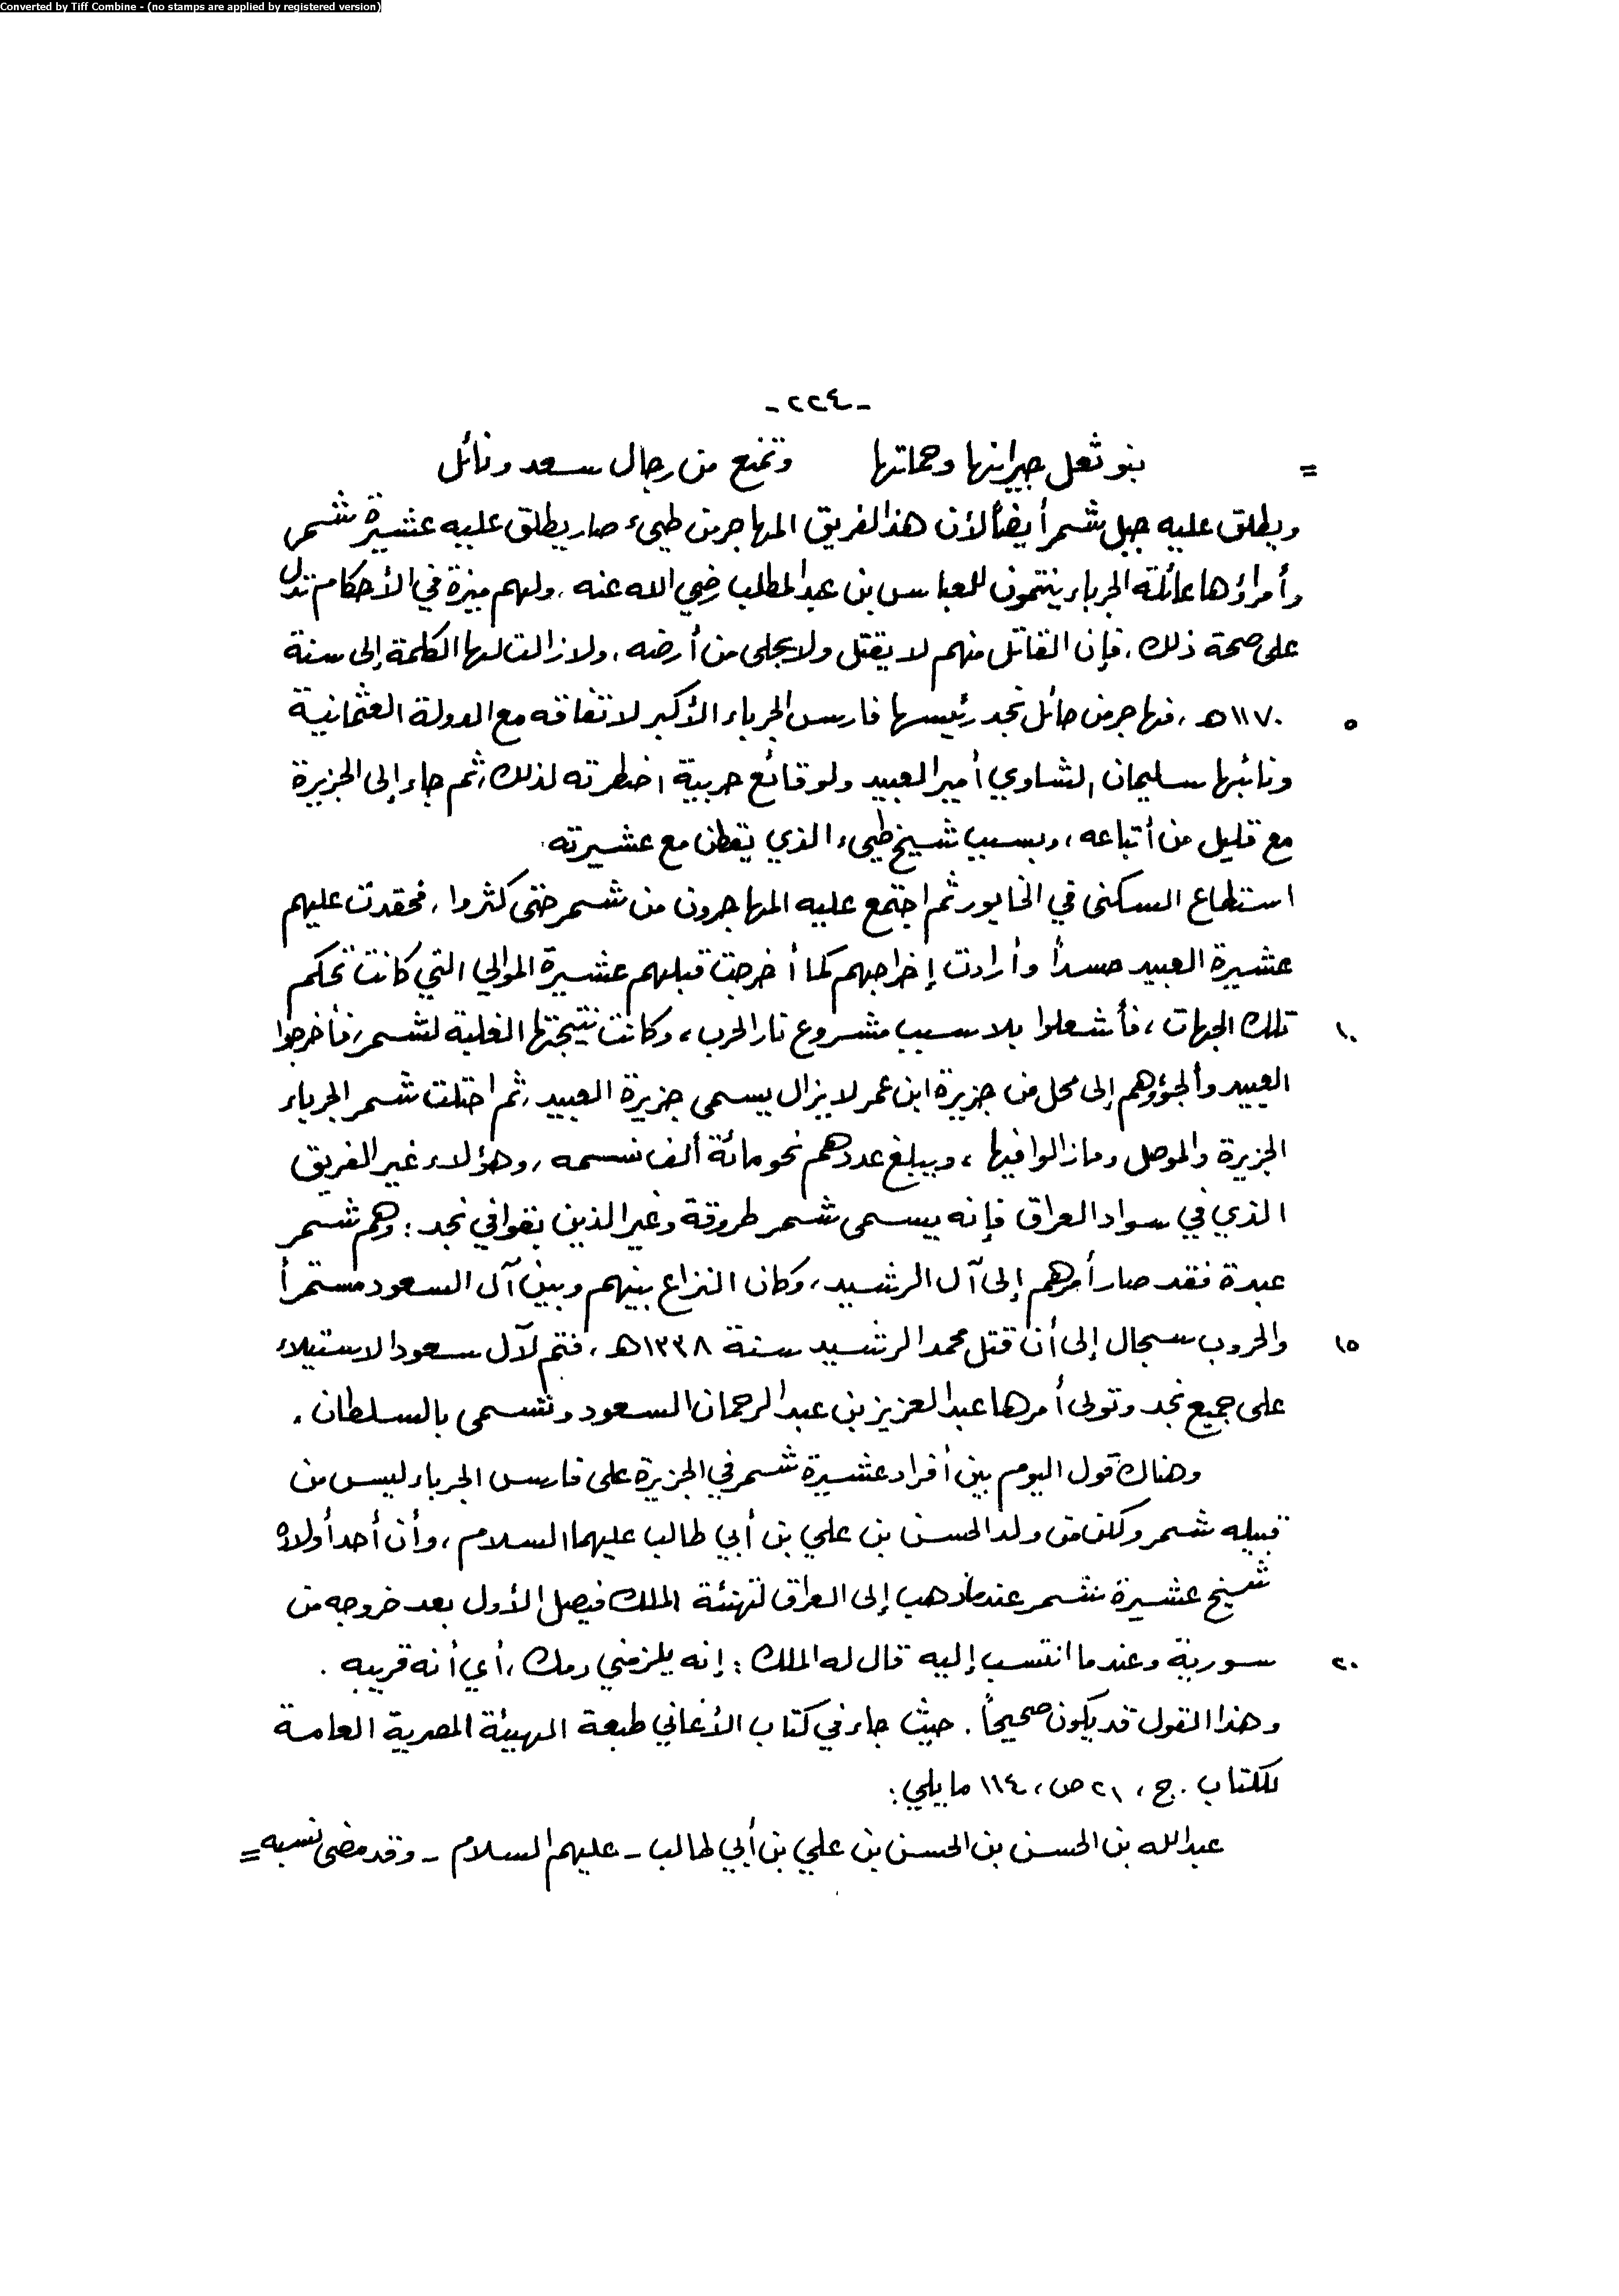 Converted by Tiff Combine - (no stamps are applied by registered version)
-٢٢٤-
= بنو ثعل جيرانها وحماتها وتمنع من رجال سعد ونائل
ويطلق عليه جبل شمر أيضاً لأن هذا الفريق المهاجر من طيء صار يطلق عليه عشيرة شمر
وأمراؤها عائلة الجرباء ينتمون للعباس بن عبد المطلب رضي الله عنه ، ولهم ميزة في الأحكام تدل
على صحة ذلك ، فإن القاتل منهم لا يقتل ولا يجلى من أرضه ، ولا زالت لها الكلمة إلى سنة
٥ ١١٧٠ هـ ، فهاجر من حائل نجد رئيسها فارس الجرباء الأكبر لاتفاقه مع الدولة العثمانية
ونائبها سليمان الشاوي أمير العبيد ولوقائع حربية اضطرته لذلك ، ثم جاء إلى الجزيرة
مع قليل من أتباعه ، وبسبب شيخ طيء الذي يقطن مع عشيرته
استطاع السكنى في الخابور ثم اجتمع عليه المهاجرون من شمر حتى كثروا ، فحقدت عليهم
عشيرة العبيد حسداً وأرادت إخراجهم كما أخرجت قبلهم عشيرة الموالي التي كانت تحكم
١٠ تلك الجهات ، فأشعلوا بلا سبب مشروع نار الحرب ، وكانت نتيجتها الغلبة لشمر ، فأخرجوا
العبيد وألجؤوهم إلى محل من جزيرة ابن عمر لا يزال يسمى جزيرة العبيد ، ثم احتلت شمر الجرباء
الجزيرة والموصل وما زالوا فيها ، ويبلغ عددهم نحو مائة ألف نسمه ، وهؤلاء غير الفريق
الذي في سواد العراق فإنه يسمى شمر طروقة وغير الذين بقوا في نجد : وهم شمر
عبدة فقد صار أمرهم إلى آل الرشيد ، وكان النزاع بينهم وبين آل السعود مستمراً
١٥ والحروب سجال إلى أن قتل محمد الرشيد سنة ١٣٣٨ هـ ، فتم لآل سعود الاستيلاء
على جميع نجد وتولى أمرها عبد العزيز بن عبد الرحمان السعود وتسمى بالسلطان .
وهناك قول اليوم بين أفراد عشيرة شمر في الجزيرة على فارس الجرباء ليس من
قبيله شمر ولكن من ولد الحسن بن علي بن أبي طالب عليهما السلام ، وأن أحد أولاد
شيخ عشيرة شمر عندما ذهب إلى العراق لتهنئة الملك فيصل الأول بعد خروجه من
٢٠ سورية وعندما انتسب إليه قال له الملك : إنه يلزمني دمك ، أي أنه قريبه .
وهذا القول قد يكون صحيحاً . حيث جاء في كتاب الأغاني طبعة الهيئة المصرية العامة
للكتاب . ج ، ٢١ ص ، ١١٤ ما يلي :
عبد الله بن الحسن بن الحسن بن علي بن أبي طالب - عليهم السلام - وقد مضى نسبه =